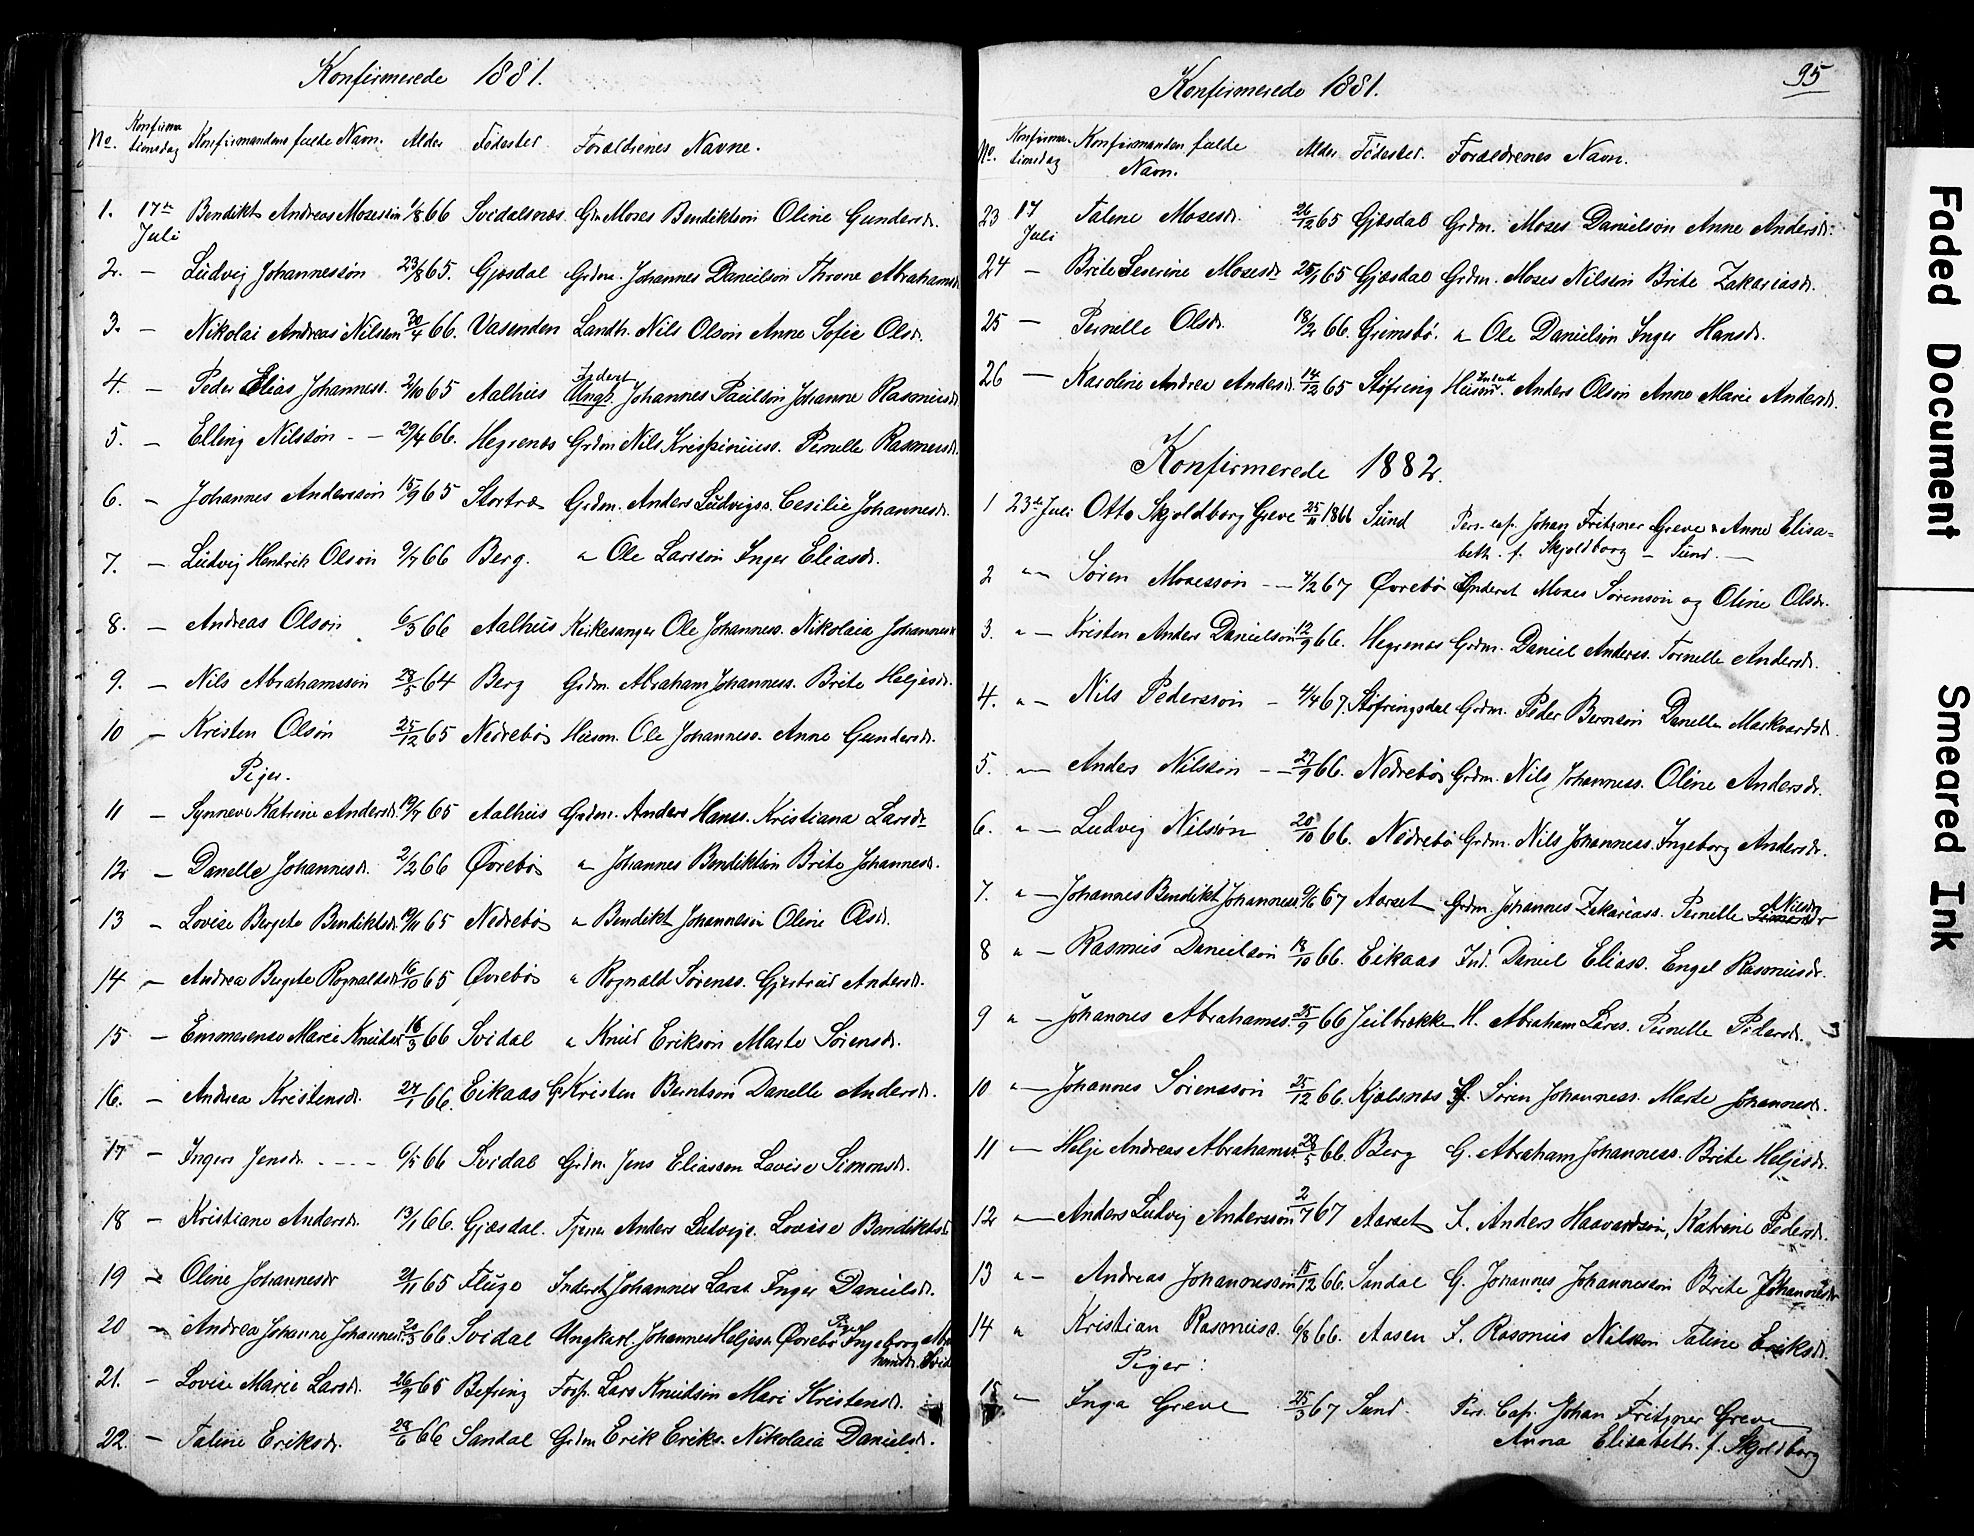 Konfirmerede 1881.
No. Konfirmationsdag Konfirmandens fulde Navn. Alder Födested Forældrenes Navne.
1. 17de Juli Bendikt Andreas Mosessön 1/8 66 Svidalsnæs. Gm Moses Bendiktson Oline Gundersdr.
2. — Ludvig Johannessön 23/8 65. Gjesdal Grdm. Johannes Danielson Throne Abrahamsd.
3. — Nikolai Andreas Nilssen 30/4 66. Vasenden Landh. Nils Olson Anne Sofie Olsdr.
4. — Peder Elias Johanness. 2/10 65 Aalhus Inderst Ungk. Johannes Paulson Johanne Rasmusdr.
5. — Elling Nilsson - - 29/4 66. Hegrenes Grdm Nils Krispinuss. Pernelle Rasmusd.
6. — Johannes Anderssön 15/9 65 Stortræ Grdm. Anders Ludvigss. Cesilie Johannesdr.
7. — Ludvig Hendrik Olson 9/7 66 Berg. " Ole Larsson Inger Eliasdr.
8. — Andreas Olson 6/3 66 Aalhus Kirkesanger Ole Johanness. Nikolaia Johannesd
9. — Nils Abrahamsson 28/5 64 Berg Grdm. Abraham Johanness. Brite Heljesd.
10 — Kristen Olsön 25/12 65 Nedrebö Husm. Ole Johanness. Anne Gundersdr.
Piger.
11 — Synneve Katrine Andersd. 19/7 65 Aalhus Grdm. Anders Hanss. Kristiana Larsdr
12 — Danelle Johannesd. 2/2 66 Øvrebö " Johannes Bendiktson Brite Johannesd.
13 — Lovise Bergete Bendiktsd. 19/11 65 Nedrebö " Bendikt Johanneson Oline Olsd.
14 — Andrea Bergete Rognaldsdr 16/10 65 Øvrebö " Rognald Sörenss. Gjertrud Andersd.
15 — Emmerense Marie Knudsdr 16/3 66 Svidal " Knud Erikson Marte Sörensdr.
16. — Andrea Kristensd. 27/1 66. Eikaas G Kristen Berntson Danelle Andersd.
17 — Inger Jensdr. - - - - 6/5 66 Svidal Grdm. Jens Eliassen Lovise Simonsdr.
18 — Kristiane Andersd. 13/1 66. Gjesdal. Tjener Anders Ludvigs. Lovise Bendiktsd
19 — Oline Johannesdr 21/11 65 Fluge Inderst Johannes Larss. Inger Danielsd.
20 — Andrea Johanne Johannesd. 20/3 66. Svidal Ungkarl Johannes Heljesn Øvrebö Pige Ingeborg
21. — Lovise Marie Larsd. 26/9 65 Befring Forp. Lars Knudson Mari Kristensd.
22. — Taline Eriksdr. 28/6 66 Sandal Grdm Erik Eriks. Nikolaia Danielsd.
95
Konfirmerede 1881.
No. Konfirmationsdag Konfirmanden fulde Navn. Alder Födested. Forældrenes Navn.
23 17 Juli Taline Mosesd. 26/12 65 Gjesdal Grdm. Moses Danielson Anne Andersd.
24 — Brite Severine Mosesdr 25/1 65 Gjesdal Grdm. Moses Nilsson Brite Zakariasd.
25 — Pernelle Olsdr. 18/2 66. Grimsbö. " Ole Danielson Inger Hansd.
26 — Karoline Andrea Andersd. 14/12 65 Stöfring Husm. Inderst Anders Olson Anne Marie Andersd.
Konfirmerede 1882.
1 23de Juli Otto Skjoldborg Greve 25/11 1866 Sund Pers. cap. Johan Fritzner Greve & Anne Elisa=
beth. f. Skjoldborg - Sund. —
2 " — Sören Mosesson - — 4/2 67 Øvrebö Inderst Moses Sörenson og Oline Olsdr.
3. " — Kristen Anders Danielson 12/9 66. Hegrenes Grdm. Daniel Anderss. Tornelle Andersd.
4. " — Nils Pedersson - 4/4 67. Stöfringsdal Grdm. Peder Bernson Danelle Markvardsd.
5. " — Anders Nilsson - — 27/9 66. Nedrebö Grdm. Nils Johanness. Oline Andersdr.
6. " — Ludvig Nilsson 20/10 66. Nedrebö Grdm. Nils Johanness. Ingeborg Andersdr.
7. " — Johannes Bendikt Johanness. 9/6 67 Aarset Grdm. Johannes Zakariass. Pernelle Nilsdr
8 " — Rasmus Danielson 18/10 66. Eikaas Ind. Daniel Eliass. Engel Rasmusdr.
9 " — Johannes Abrahamss. 25/9 66 Jeilbrekke H. Abraham Larss. Pernelle Pedersd.
10 " — Johannes Sörensson 25/12 66. Kjölsnes G. Sören Johanness. Marte Johannesd.
11 " — Helje Andreas Abrahamss. 28/5 66. Berg G. Abraham Johanness. Brite Heljesd.
12 " — Anders Ludvig Andersson 2/7 67 Aarset I. Anders Haavardson, Katrine Pedersd.
13 " — Andreas Johannesson 15/12 66. Sandal G. Johannes Johannesson Brite Johannesdr
14 " Kristian Rasmuss. 6/8 66. Aasen I. Rasmus Nilsson Taline Eriksd.
Piger:
15 " — Inga Greve 25/3 67 Sund. Pers. Cap. Johan Fritzner Greve
Anna Elisabeth. f. Skjoldborg
Faded Document
Smeared Ink